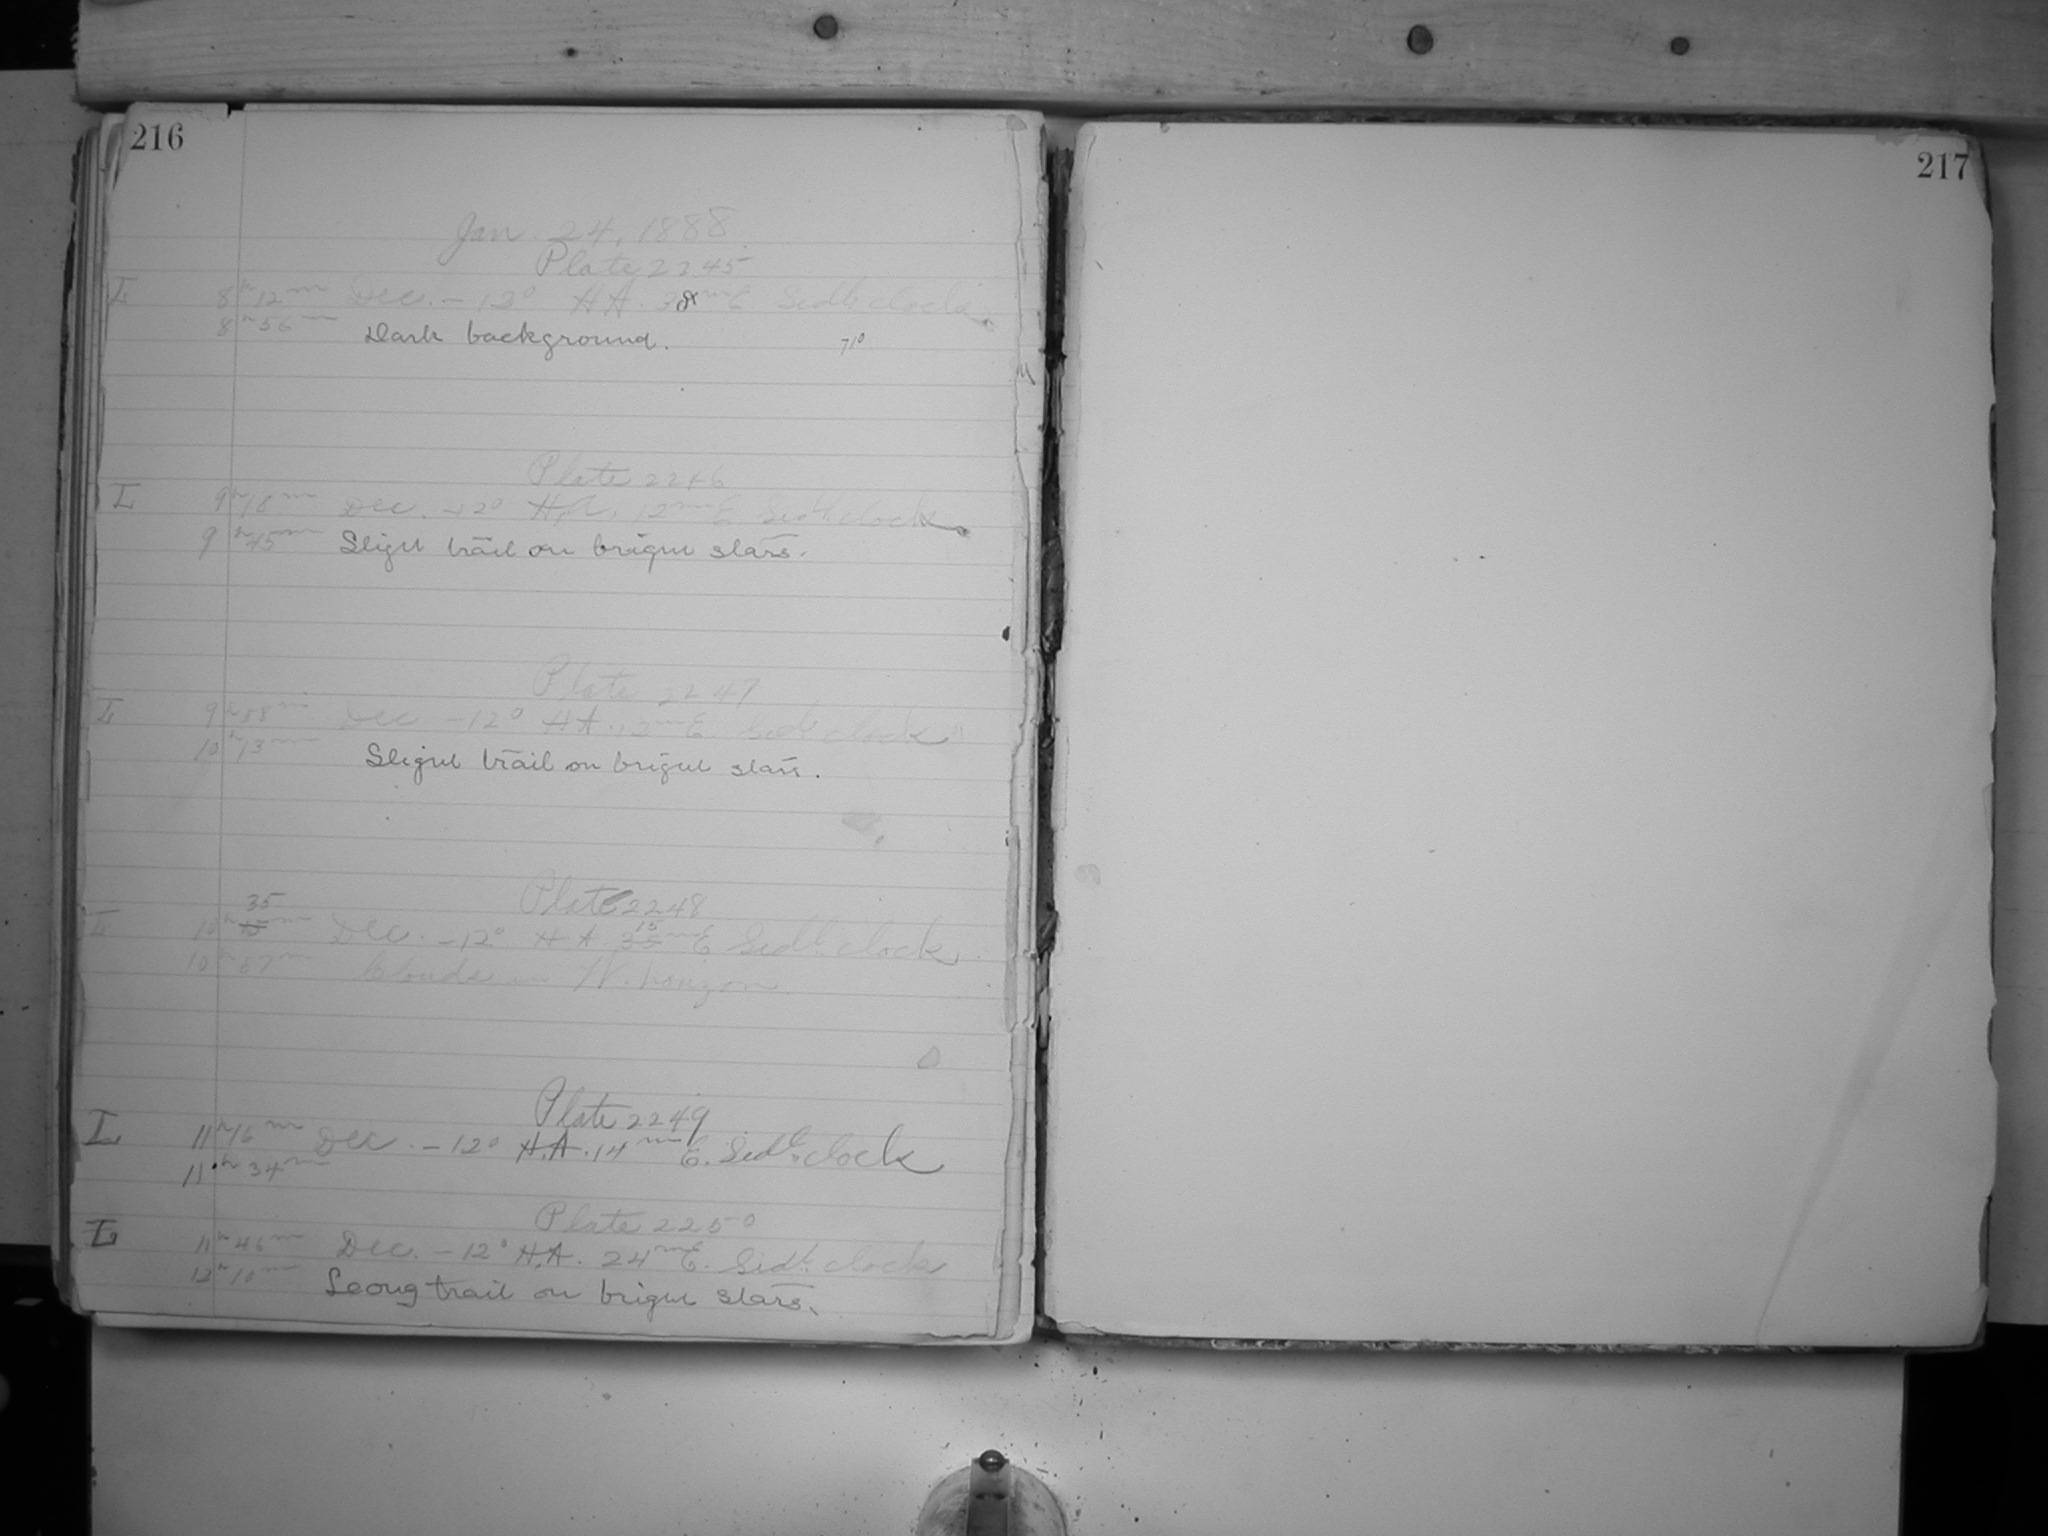 216
217
Jan. 24, 1888
Plate 2245
I 8h 12m Dec. -12° H.A. E Sidl. clock.
8h 56m Dark background. 710
Plate 2246
I 9h 18m Dec. -12° H.A. 12m E Sidl. clock.
9h 45m Slight trail on bright stars.
Plate 2247
I 9h 58m Dec -12° H.A. 12m E. Sidl. clock
10h 13m Slight trail on bright stars.
Plate 2248
35 15
I 10h 15m Dec. -12° H.A. 35m E Sidl. clock.
10h 57m Clouds in W. horizon
Plate 2249
I 11h 16m Dec. -12° H.A. 14m E. Sidl. clock
11h 34m
Plate 2250
I 11h 46m Dec. -12° H.A. 24m E. Sidl. clock
12h 10m Long trail on bright stars.